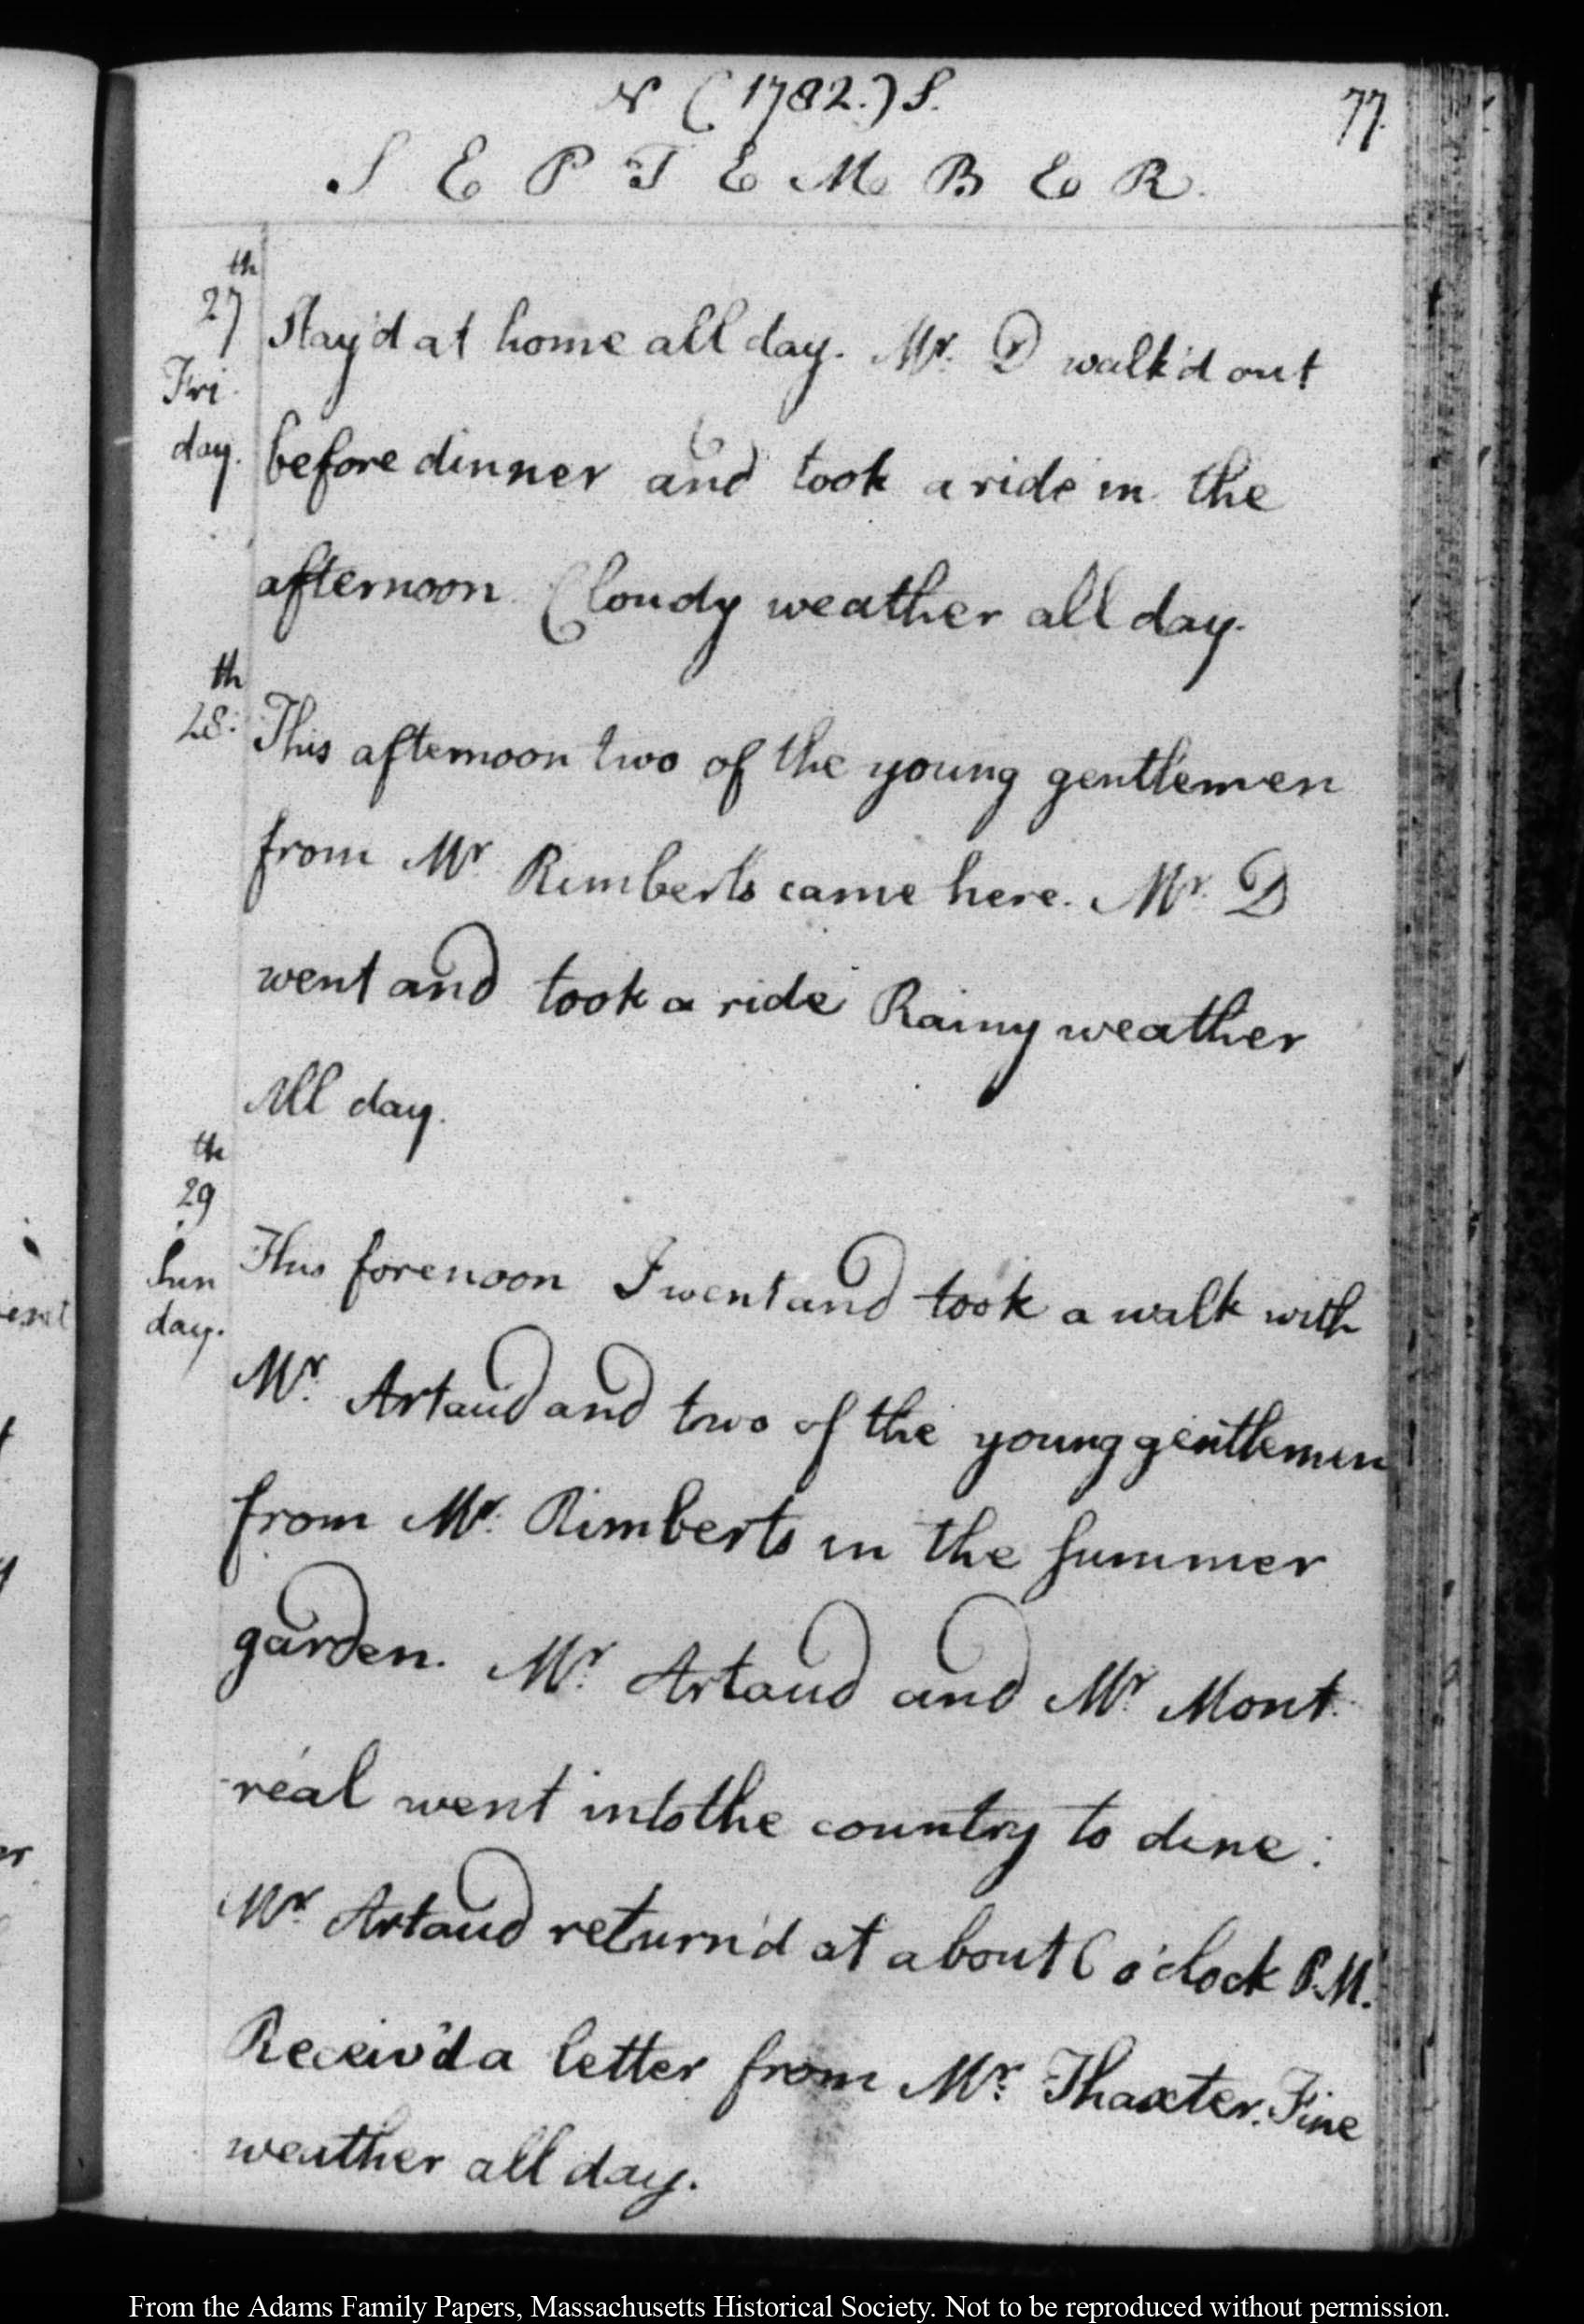 N (1782.) S.
77.
SEPTEMBER.
th
27 Stay'd at home all day. Mr. D walk'd out
Fri
day. before dinner and took a ride in the
afternoon. Cloudy weather all day.
th
28. This afternoon two of the young gentlemen
from Mr. Rimberts came here. Mr. D
went and took a ride Rainy weather
All day.
th
29
Sun
day. This forenoon I went and took a walk with
Mr. Artaud and two of the young gentlemen
from Mr. Rimberts in the Summer
garden. Mr. Artaud and Mr. Mont-
-réal went into the country to dine:
Mr. Artaud return'd at about 6 o'clock P.M.
Receiv'd a letter from Mr. Thaxter. Fine
weather all day.
From the Adams Family Papers, Massachusetts Historical Society. Not to be reproduced without permission.